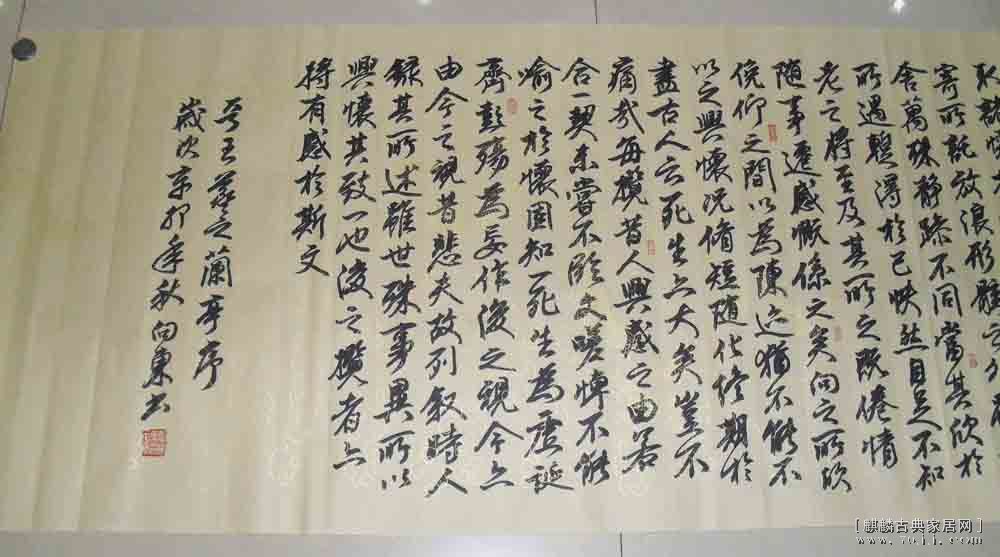 取諸懷
寄所託放浪形骸之外
舍萬殊靜躁不同當其欣於
所遇蹔得於己快然自足不知
老之將至及其所之既倦情
隨事遷感慨係之矣向之所欣
俛仰之間以為陳迹猶不能不
以之興懷況脩短隨化終期於
盡古人云死生亦大矣豈不
痛哉每攬昔人興感之由若
合一契未嘗不臨文嗟悼不能
喻之於懷固知一死生為虛誕
齊彭殤為妄作後之視今亦
由今之視昔悲夫故列叙時人
錄其所述雖世殊事異所以
興懷其致一也後之攬者亦
將有感於斯文
王羲之蘭亭序
歲次辛卯年秋向東书
[麒麟古典家居网]
www.7qjj.com